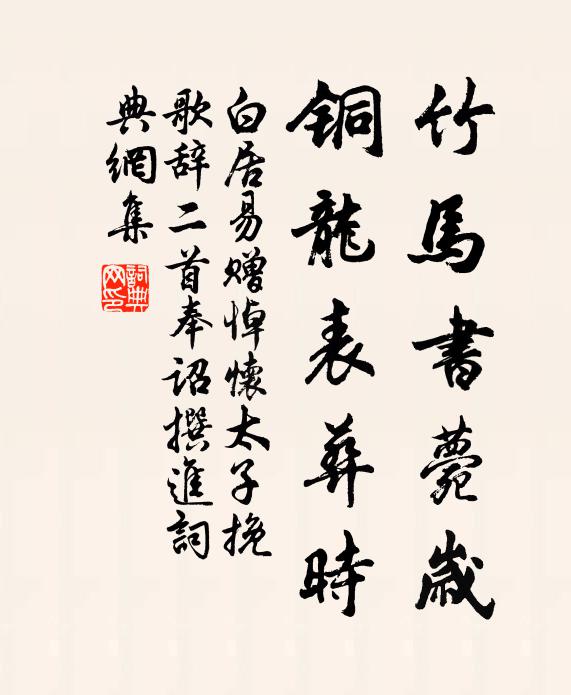 竹馬書薨歲
铜龍表葬時
白居易赠悼懷太子挽
歌辞二首奉诏撰進詞
典網集
詞典网印